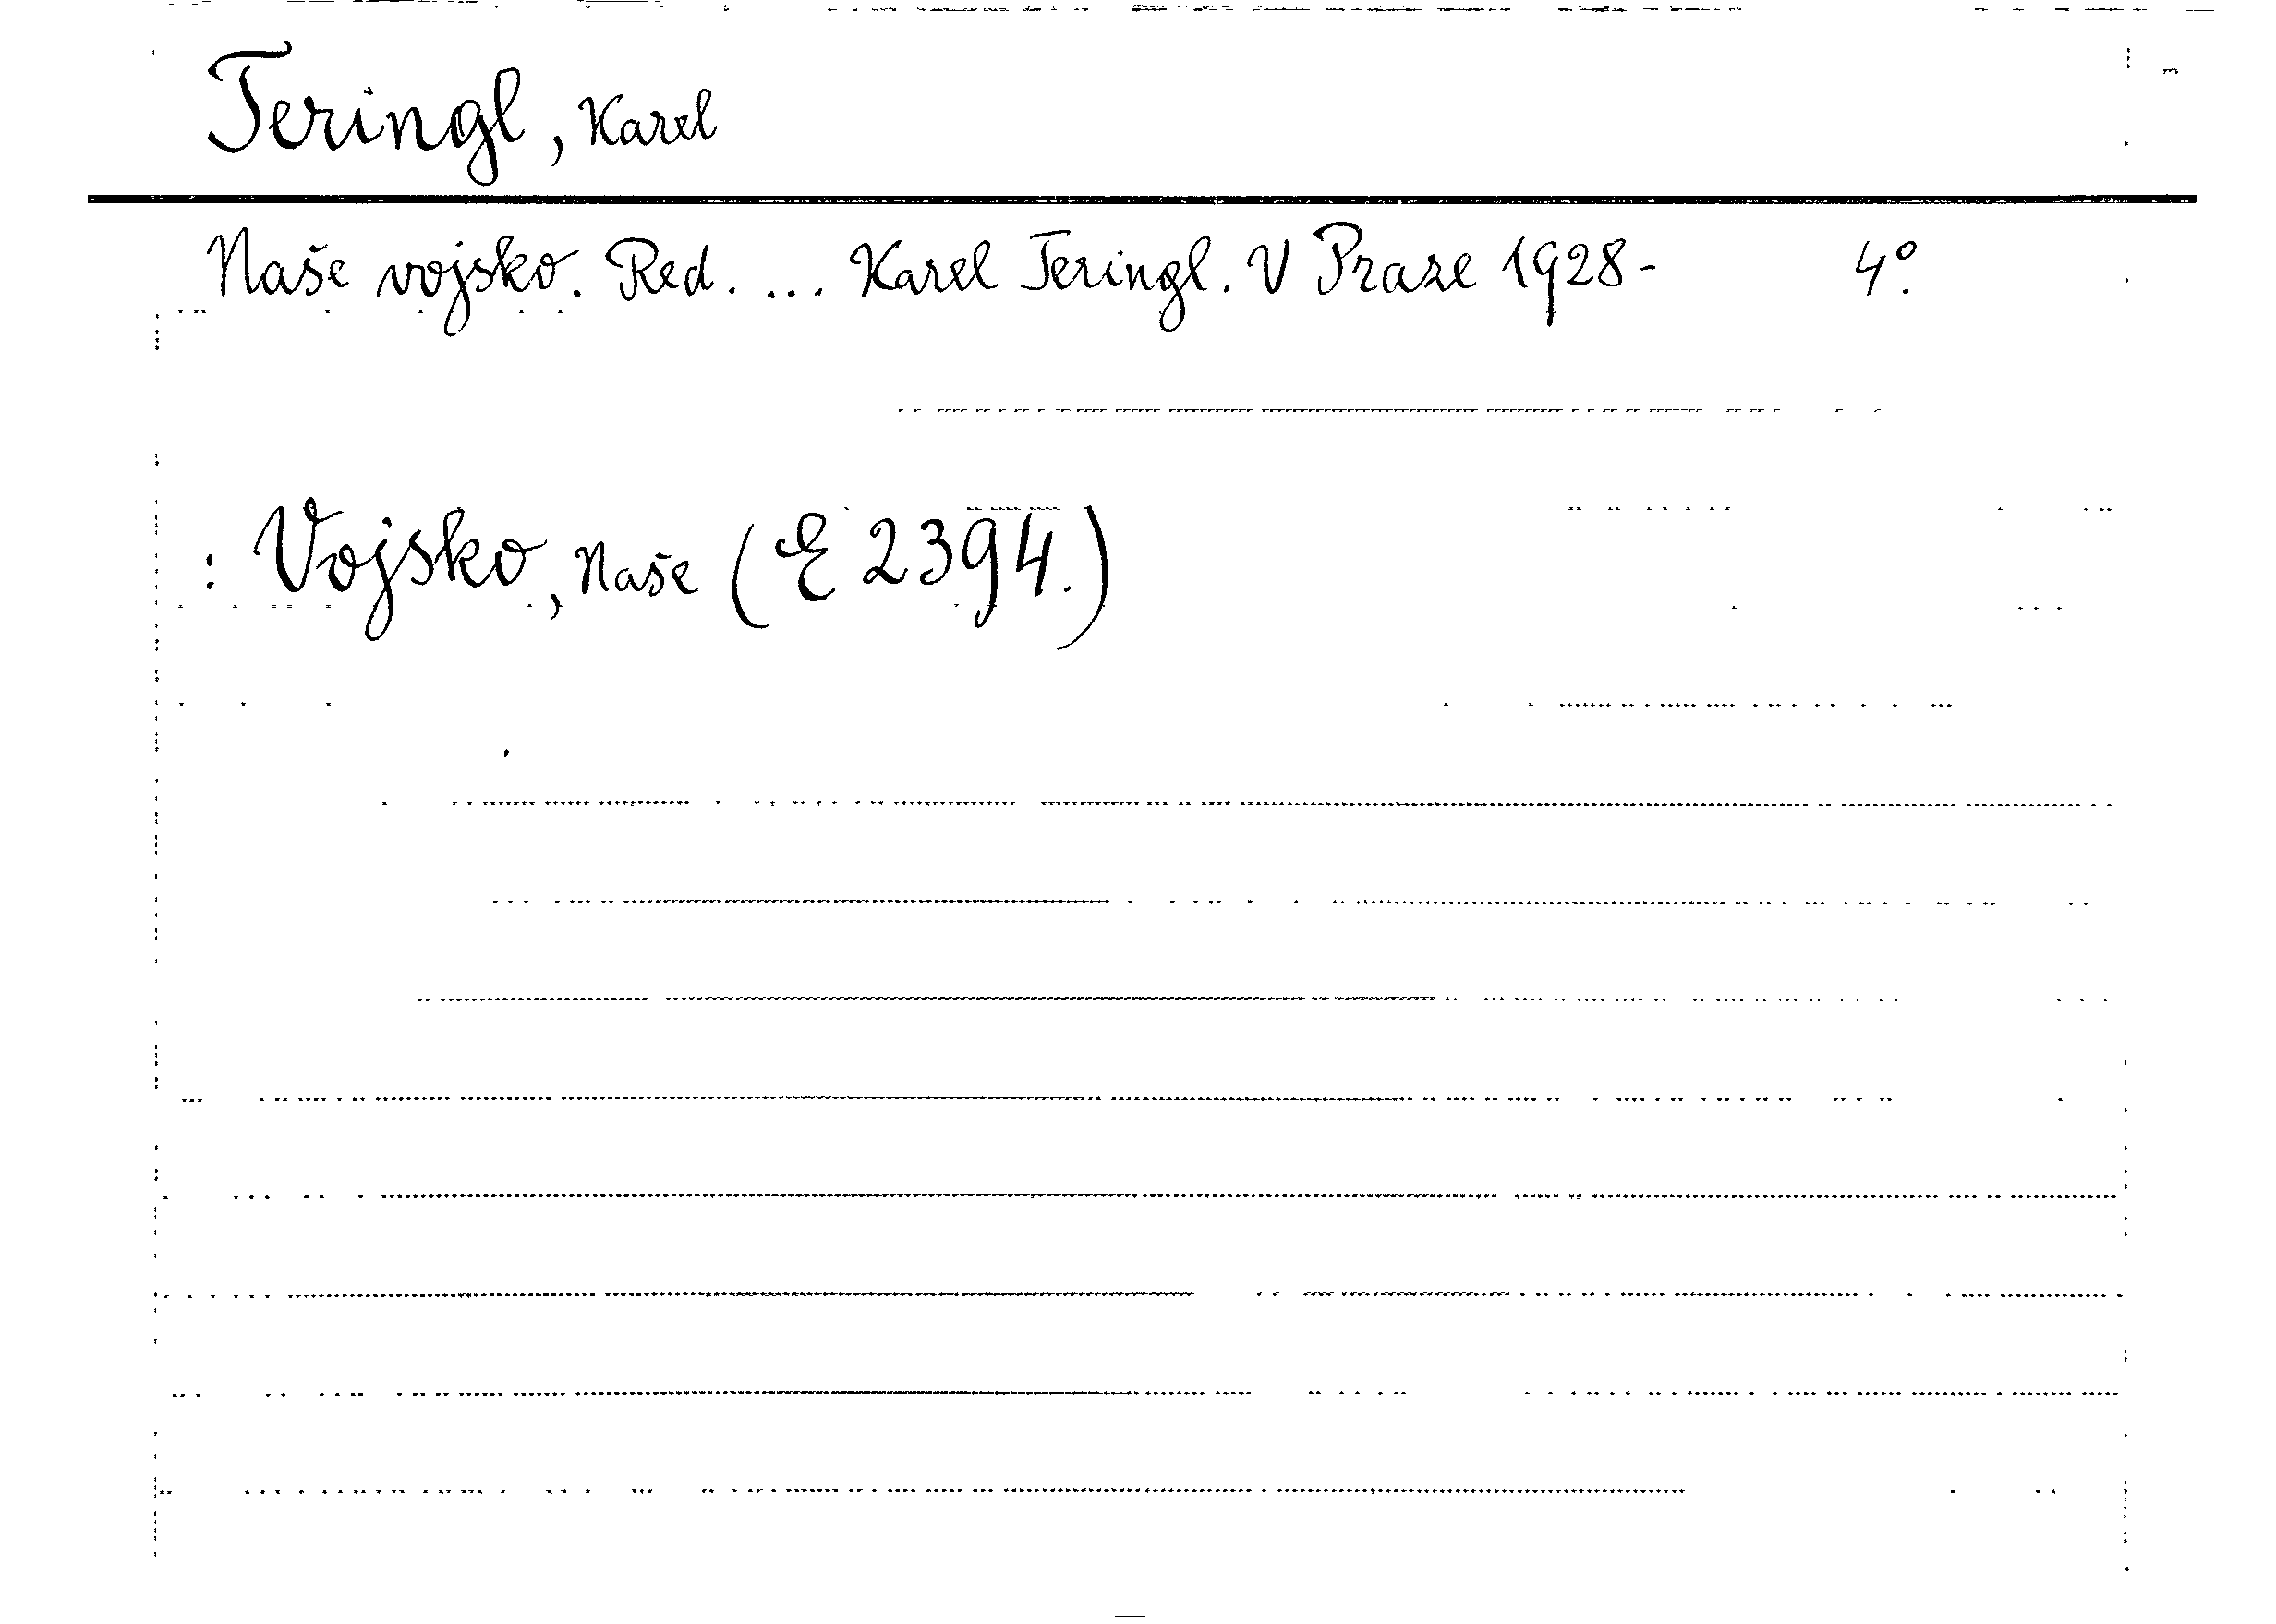 Teringl, Karel
Naše vojsko. Red. ... Karel Teringl. V Praze 1928- 4°.
: Vojsko, Naše (E 2394.)